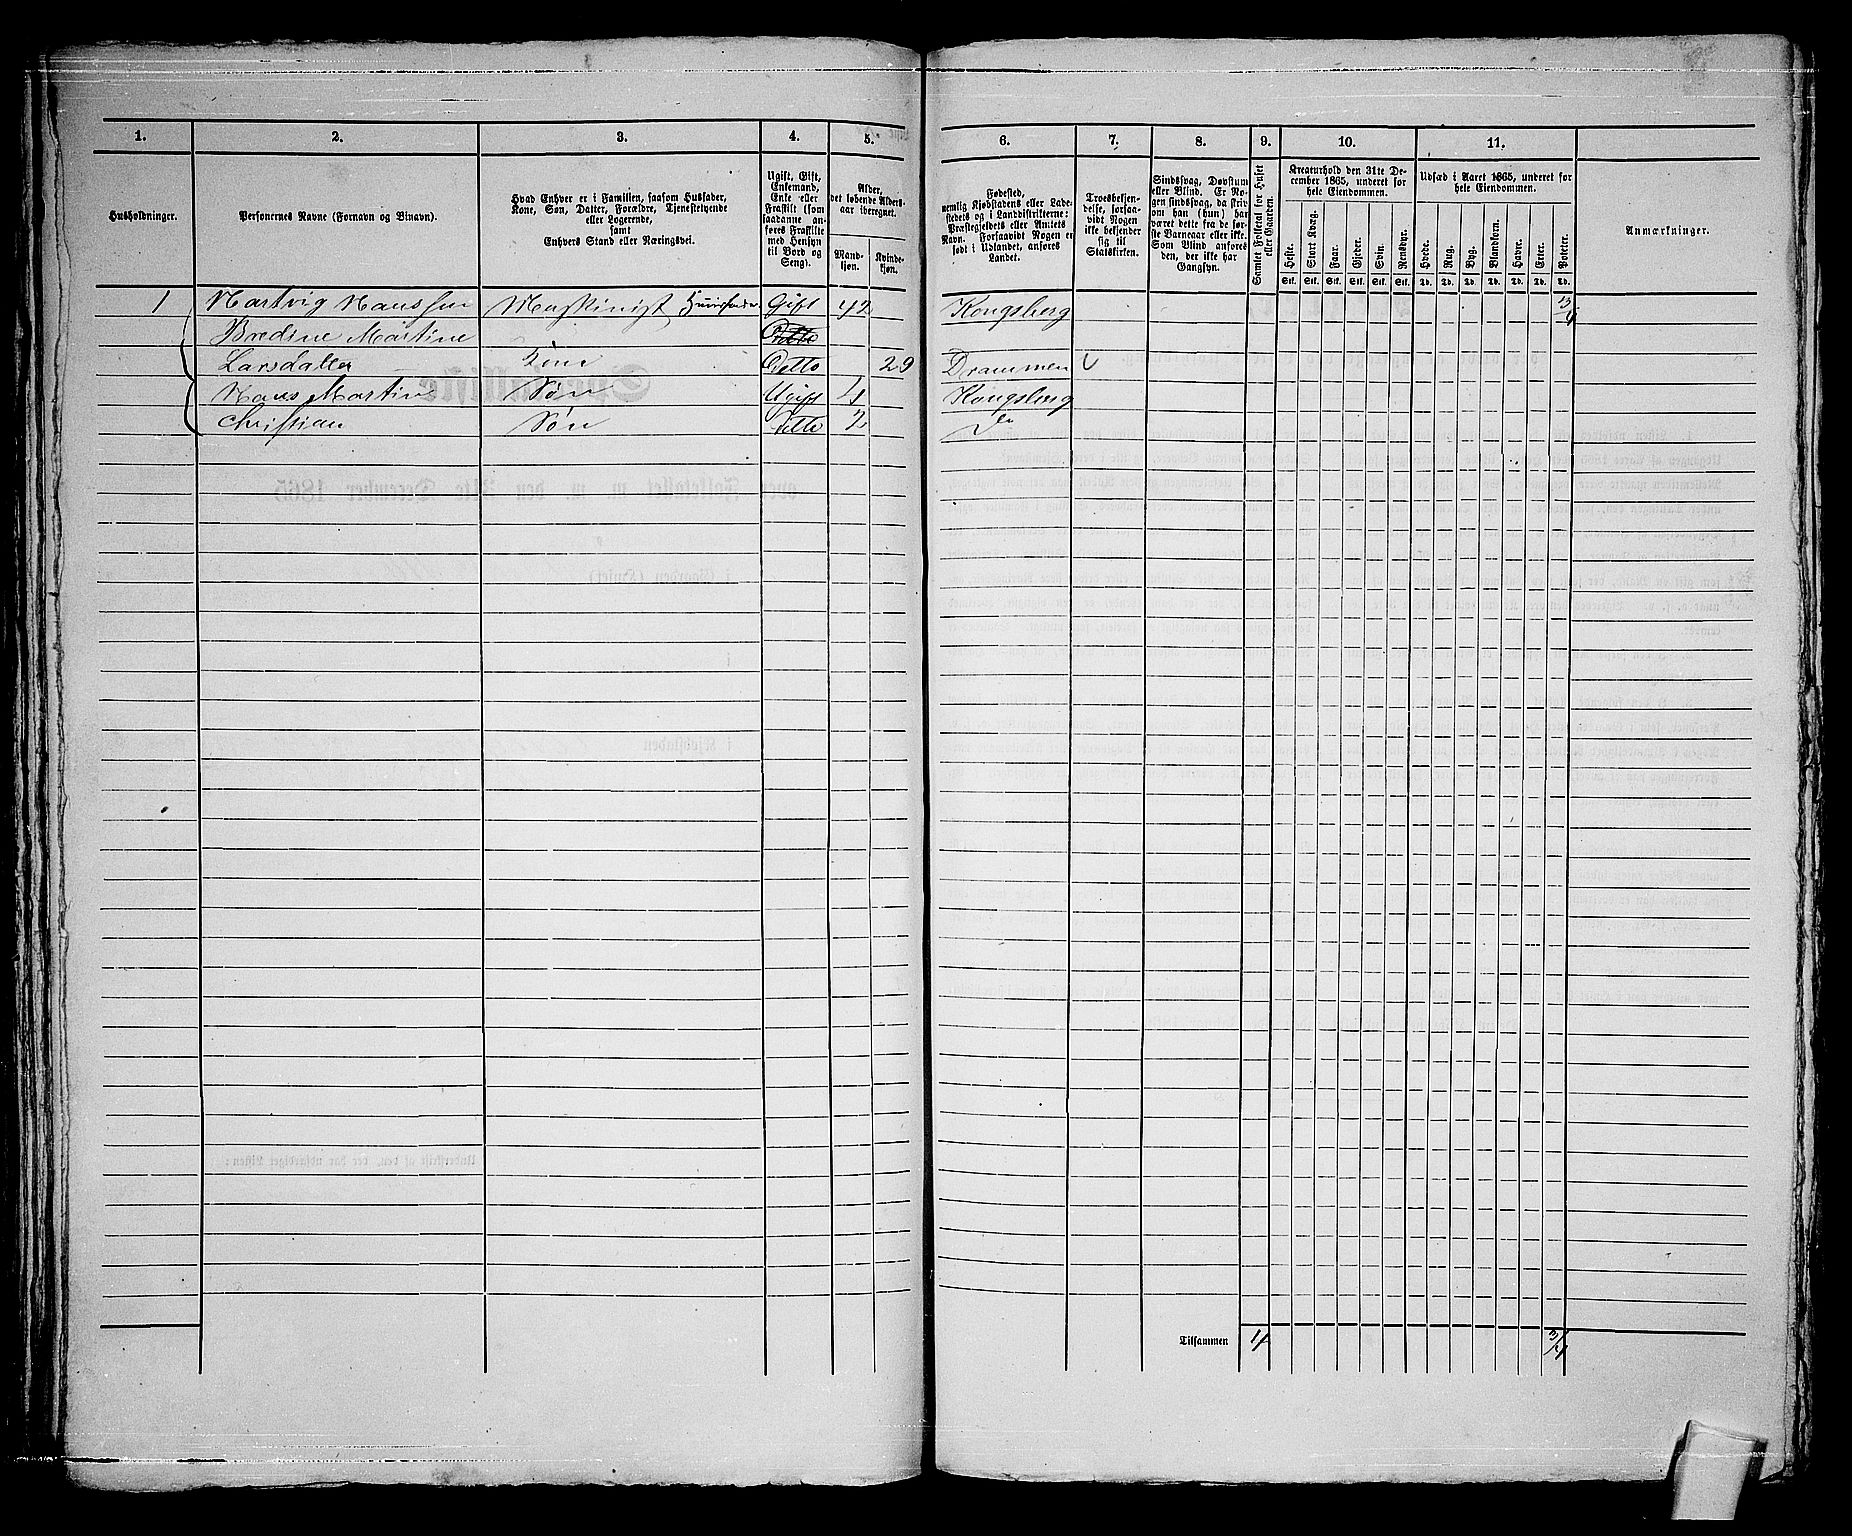 1. 2. 3. 4. 5. 6. 7. 8. 9. 10. 11.
Husholdninger.
Personernes Navne (Fornavn og Binavn).
Hvad Enhver er i Familien, saasom Husfader,
Kone, Søn, Datter, Forældre, Tjenestetyende
eller Logerende,
samt
Enhvers Stand eller Næringsvei.
Ugift, Gift,
Enkemand,
Enke eller
Fraskilt (som
saadanne an-
føres Fraskilte
med Hensyn
til Bord og
Seng).
Alder,
det løbende Alders-
aar iberegnet.
Mand-
kjøn.
Kvinde-
kjøn.
Fødested,
nemlig Kjøbstadens eller Lade-
stedets og i Landdistrikterne:
Præstegjeldets eller Amtets
Navn. Forsaavidt Nogen er
født i Udlandet, anføres
Landet.
Troesbekjen-
delse, forsaa-
vidt Nogen
ikke bekjender
sig til
Statskirken.
Sindssvag, Døvstum
eller Blind. Er No-
gen sindssvag, da skriv
om han (hun) har
været dette fra de før-
ste Barneaar eller ikke.
Som Blind anføres
den, der ikke har
Gangsyn.
Samlet Folketal for Huset
eller Gaarden.
Kreaturhold den 31te De-
cember 1865, underet for
hele Eiendommen.
Heste. Stort Kvæg. Faar. Gjeder. Svin. Rensdyr.
Stk. Stk. Stk. Stk. Stk. Stk.
Udsæd i Aaret 1865, underet for
hele Eiendommen.
Hvede. Rug. Byg. Blandkorn. Havre. Erter. Poteter.
Td. Td. Td. Td. Td. Td. Td.
Anmærkninger.
1 Hartvig Hanssen Maskinist Gift 42 Kongsberg 3/4
Martine Ditto
Larsdatter Kone Ditto 29 Drammen
Hans Martin Søn Ugift 4 Kongsberg
Christian Søn Ditto 2 Do
Tilsammen 4 3/4